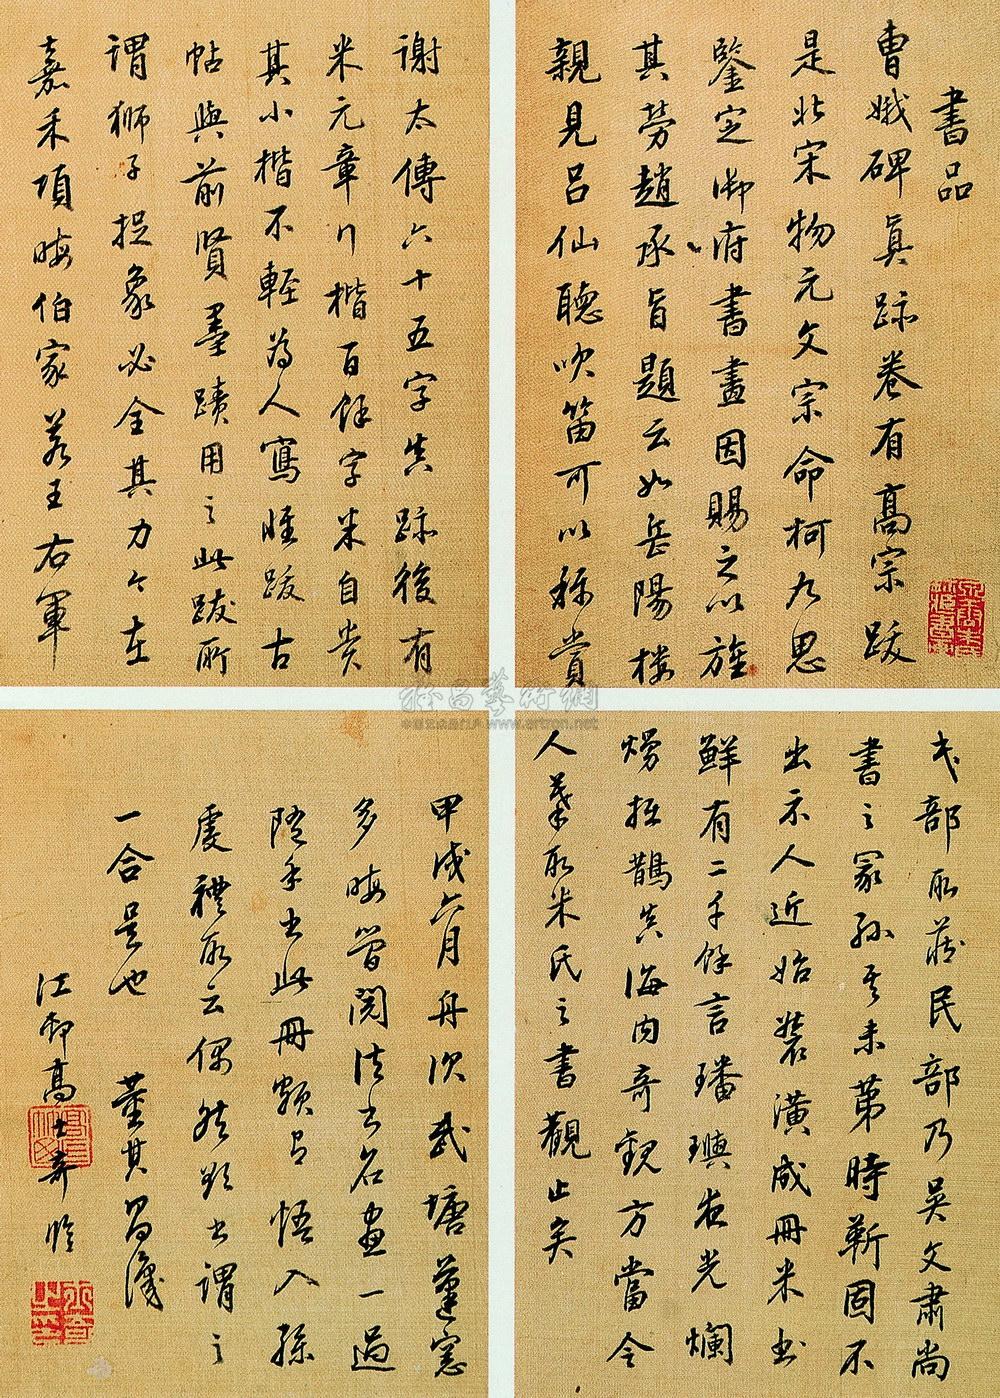 書品
曹娥碑真跡卷有高宗跋
是北宋物元文宗命柯九思
鑒定御府書畫因賜之以旌
其勞趙承旨題云如岳陽樓
親見呂仙聽吹笛可以稱賞
謝太傅六十五字真跡後有
米元章行楷百餘字米自貴
其小楷不輕為人寫唯跋古
帖與前賢墨蹟用之此跋所
謂獅子捉象必全其力今在
嘉禾項晦伯家若王右軍
戈部所藏民部乃吳文肅尚
書之冢孫其未第時靳固不
出示人近始裝潢成冊米書
鮮有二千餘言璠璵夜光爛
熳抵鵲真海內奇觀方當令
人棄所米氏之書觀止矣
甲戌六月舟次武塘蓬窗
多晦曾閱法書名畫一過
隨手書此冊頗有悟入孫
虔禮所云偶然欲書謂之
一合是也
董其昌識
江都高士奇臨
雅昌藝術網
中国艺术品门户 www.artron.net